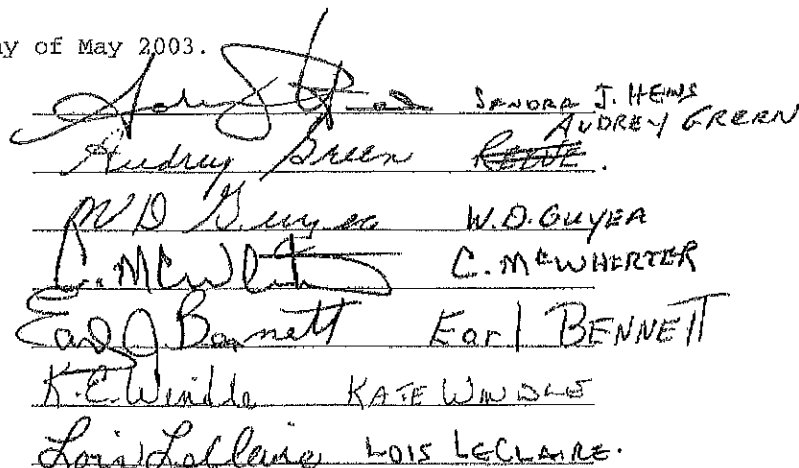 y of May 2003.
SANDRA J. HEINS
AUDREY GREEN
Audrey Green
WD Guyea W.D. GUYEA
C. McWh C. McWHERTER
Earl J. Bennett Earl BENNETT
K.E. Windle KATE WINDLE
Lois LeClaire LOIS LECLAIRE.